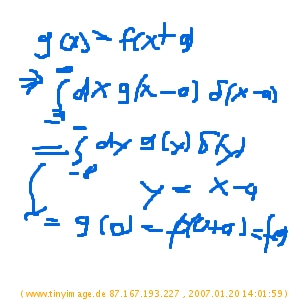 g(x) = f(x+a)
⇒ ∫ dx g(x-a) δ(x-a)
= ∫ dy g(y) δ(y)
y = x-a
= g(0) = f(0+a) = f(a)
(www.tinyimage.de 87.167.193.227 , 2007.01.20 14:01:59)